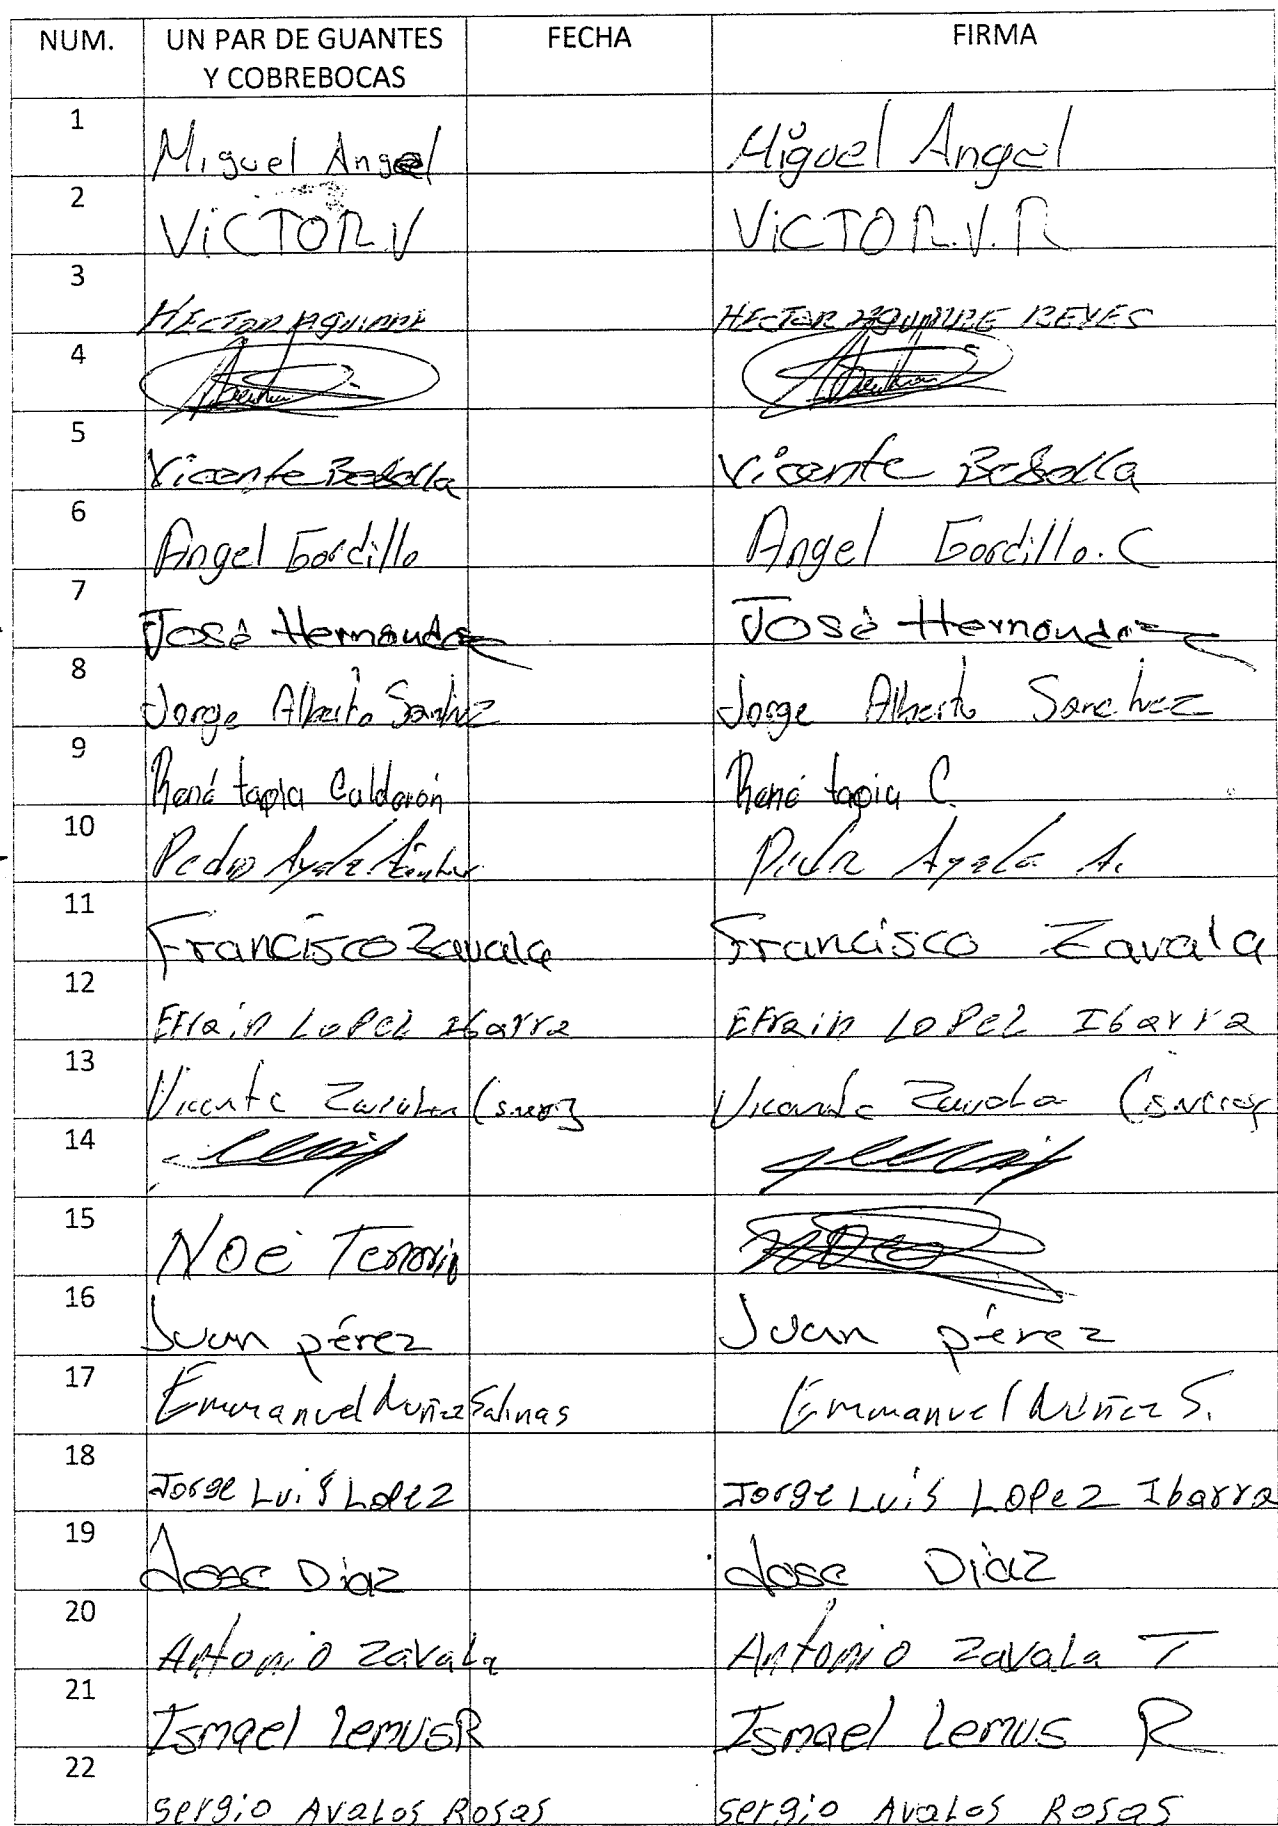 NUM. UN PAR DE GUANTES FECHA FIRMA
Y COBREBOCAS
1 Miguel Angel Miguel Angel
2 ViCTOR.V ViCTOR.V.R
3 HECTOR AGUIRRE HECTOR AGUIRRE REYES
4
5 Vicente Vicente
6 Angel Gordillo Angel Gordillo.C
7 José Hernandez José Hernandez
8 Jorge Alberto Sanchez Jorge Alberto Sanchez
9 René tapia Calderón René tapia C.
10 Pedro Ayala Pedro Ayala A.
11 Francisco Zavala Francisco Zavala
12 EFrain LoPez Ibarra EFrain LoPez Ibarra
13 Vicente Vicente Zavala
14
15 Noé Tenorio
16 Juan pérez Juan pérez
17 Emmanuel Núñez Salinas Emmanuel Núñez S.
18 Jorge Luis LoPez Jorge Luis LOPez Ibarra
19 Jose Diaz Jose Diaz
20 Antonio Zavala Antonio Zavala T
21 Ismael Lemus R Ismael Lemus R
22 sergio AvaLos Rosas sergio AvaLos Rosas